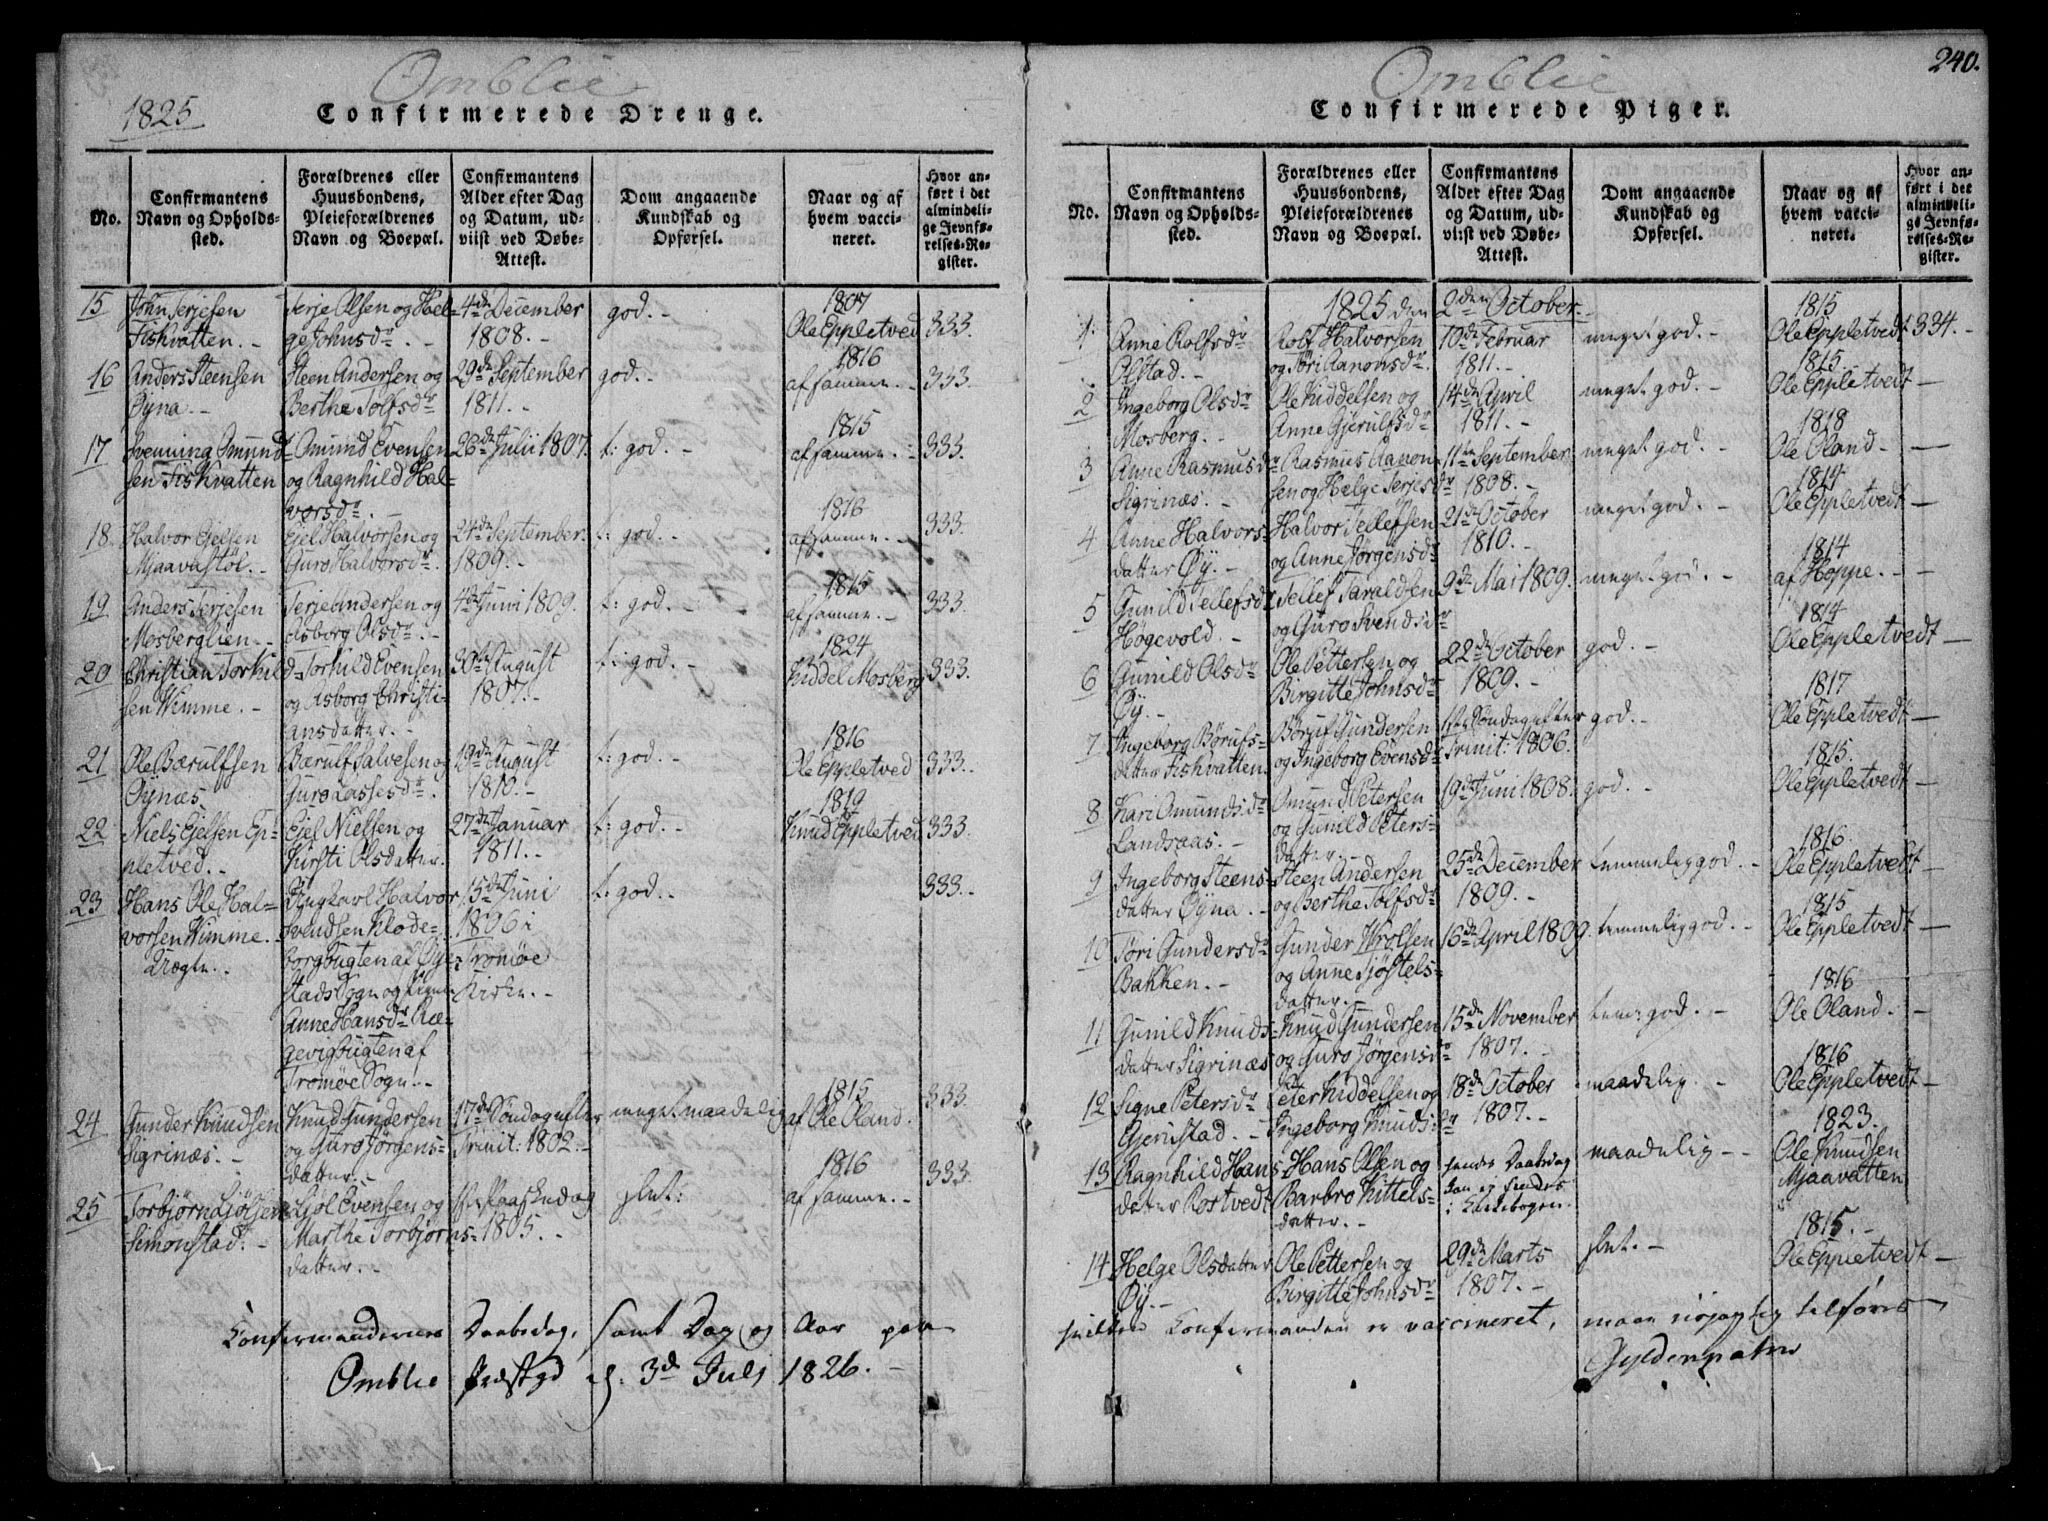 Omblie
1825
Confirmerede Drenge.
No.
Confirmantens
Navn og Opholds-
sted.
Forældrenes eller
Huusbondens,
Pleieforældrenes
Navn og Boepæl.
Confirmantens
Alder efter Dag
og Datum, ud-
viist ved Døbe-
Attest.
Dom angaaende
Kundskab og
Opførsel.
Naar og af
hvem vacci-
neret.
Hvor an-
ført i det
almindeli-
ge Jevnfø-
relses-Re-
gister.
15
John Terjesen
Fiskvatten.
Terje Olsen og Hel-
ge Johnsdr.
4de December
1808.
god.
1807
Ole Eppletved
333.
16
Anders Steensen
Øyna.
Steen Andersen og
Berthe Tolfsdr
29de September
1811.
god.
1816
af samme.
333.
17
Svenning Omund-
sen Fiskvatten
Omund Evensen
og Ragnhild Hal-
vorsdr.
26de Julii 1807.
t: god.
1815
af samme.
333.
18.
Halvor Ejelsen
Mjaavastøl.
Ejel Halvorsen og
Guro Halvorsdr.
24de September
1809.
t: god.
1816
af samme.
333.
19
Anders Terjesen
Mosberglien.
Terje Andersen og
Asborg Olsdr.
4de Juni 1809.
t: god.
1815
af samme.
333.
20
Christian Torkild-
sen Wimme.
Torkild Evensen
og Asborg Christi-
ansdatter.
30te August
1807.
t: god.
1824
Kiddel Mosberg
333.
21
Ole Bærulfsen
Øynæs.
Bærulf Salvesen og
Guro Lassesdr.
19de August
1810.
t: god.
1816
Ole Eppletved
333.
22
Niels Ejelsen Ep-
pletved.
Ejel Nielsen og
Kirsti Olsdatter.
27de Januar
1811.
t: god.
1819
Knud Eppletved
333.
23
Hans Ole Hal-
vorsen Wimme.
Uægte.
Ungkarl Halvor
Svendsen Klode-
borgbugten af Øye-
stads Sogn og Pigen
Anne Hansdr Ræ-
gevigbugten af
Tromøe Sogn.
15de Juni
1806 i
Tromøe
Kirke.
t: god.
333.
24
Gunder Knudsen
Sigrinæs.
Knud Gundersen
og Guro Jørgens-
datter.
17de Søndag efter
Trinit: 1802.
meget maadelig
1815
af Ole Oland.
333.
25
Torbjørn Ljølsen
Simonstad.
Ljøl Evensen og
Marthe Torbjørns-
datter.
1ste Paaskedag
1805.
slet:
1816
af samme.
333.
Omblie
240.
Confirmerede Piger.
No.
Confirmantens
Navn og Opholds-
sted.
Forældrenes eller
Huusbondens,
Pleieforældrenes
Navn og Boepæl.
Confirmantens
Alder efter Dag
og Datum, ud-
viist ved Døbe-
Attest.
Dom angaaende
Kundskab og
Opførsel.
Naar og af
hvem vacci-
neret.
Hvor an-
ført i det
almindeli-
ge Jevnfø-
relses-Re-
gister.
1825 den 2den October.
1.
Anne Rolfsdr
Olstad.
Rolf Halvorsen
og Tøri Aanonsdr.
10de Februar
1811.
meget god.
1815
Ole Eppletvedt
334.
2
Ingeborg Olsdr
Mosberg.
Ole Kiddelsen og
Anne Gjerulfsdr
14de April
1811.
meget god.
1815.
Ole Eppletvedt
3
Anne Rasmusdr
Sigrinæs.
Rasmus Aanon-
sen og Helge Terjesdr
11te September
1808.
meget god.
1818
Ole Oland.
4
Anne Halvors-
datter Øy.
Halvor Tellefsen
og Anne Jørgensdr
21de October
1810.
meget god.
1814
Ole Eppletvedt
5
Gunild Tellefsdr
Høgevold.
Tellef Taraldsen
og Guro Svendsdr
9de Mai 1809.
meget god.
1814
af Hoppe.
6
Gunild Olsdr
Øy.
Ole Pettersen og
Birgitte Johnsdr
22de October
1809.
god.
1814
Ole Eppletvedt
7
Ingeborg Børufs-
datter Fiskvatten.
Børuf Gundersen
og Ingeborg Evensdr
1ste Søndag efter
Trinit: 1806.
god.
1817
Ole Eppletvedt
8
Kari Omundsdr
Landsaas.
Omund Petersen
og Gunild Peters-
datter.
19de Juni 1808.
god.
1815.
Ole Eppletvedt
9
Ingeborg Steens-
datter Øyna.
Steen Andersen
og Berthe Tolfsdr
25de December
1809.
temmelig god.
1816.
Ole Eppletvedt
10
Tøri Gundersdr
Bakken.
Gunder Wrolsen
og Anne Sjøstels-
datter.
16de April 1809.
temmelig god.
1815
Ole Eppletvedt
11
Gunild Knuds-
datter Sigrinæs
Knud Gundersen
og Guro Jørgensdr
15de November
1807.
tem: god.
1816
Ole Oland.
12
Signe Petersdr
Gjerustad.
Peter Kiddelsen og
Ingeborg Knudsdr
18de October
1807.
maadelig.
1816
Ole Eppletvedt
13
Ragnhild Hans-
datter Rostvedt
Hans Olsen og
Barbro Kittels-
datter.
hendes Daabsdag
kan ej findes
i Kirkebogen.
maadelig
1823.
Ole Knudsen
Mjaavatten
14
Helge Olsdatter
Øy.
Ole Pettersen og
Birgitte Johnsdr
29de Marts
1807.
slet.
1815.
Ole Eppletvedt
Confirmandernes Daabsdag, samt Dag og Aar paa hvilken Confirmanden er vaccineret, maae nøjagtig tilføres
Omblie Præstgd d. 3d Julj 1826.
Gyldenpalm